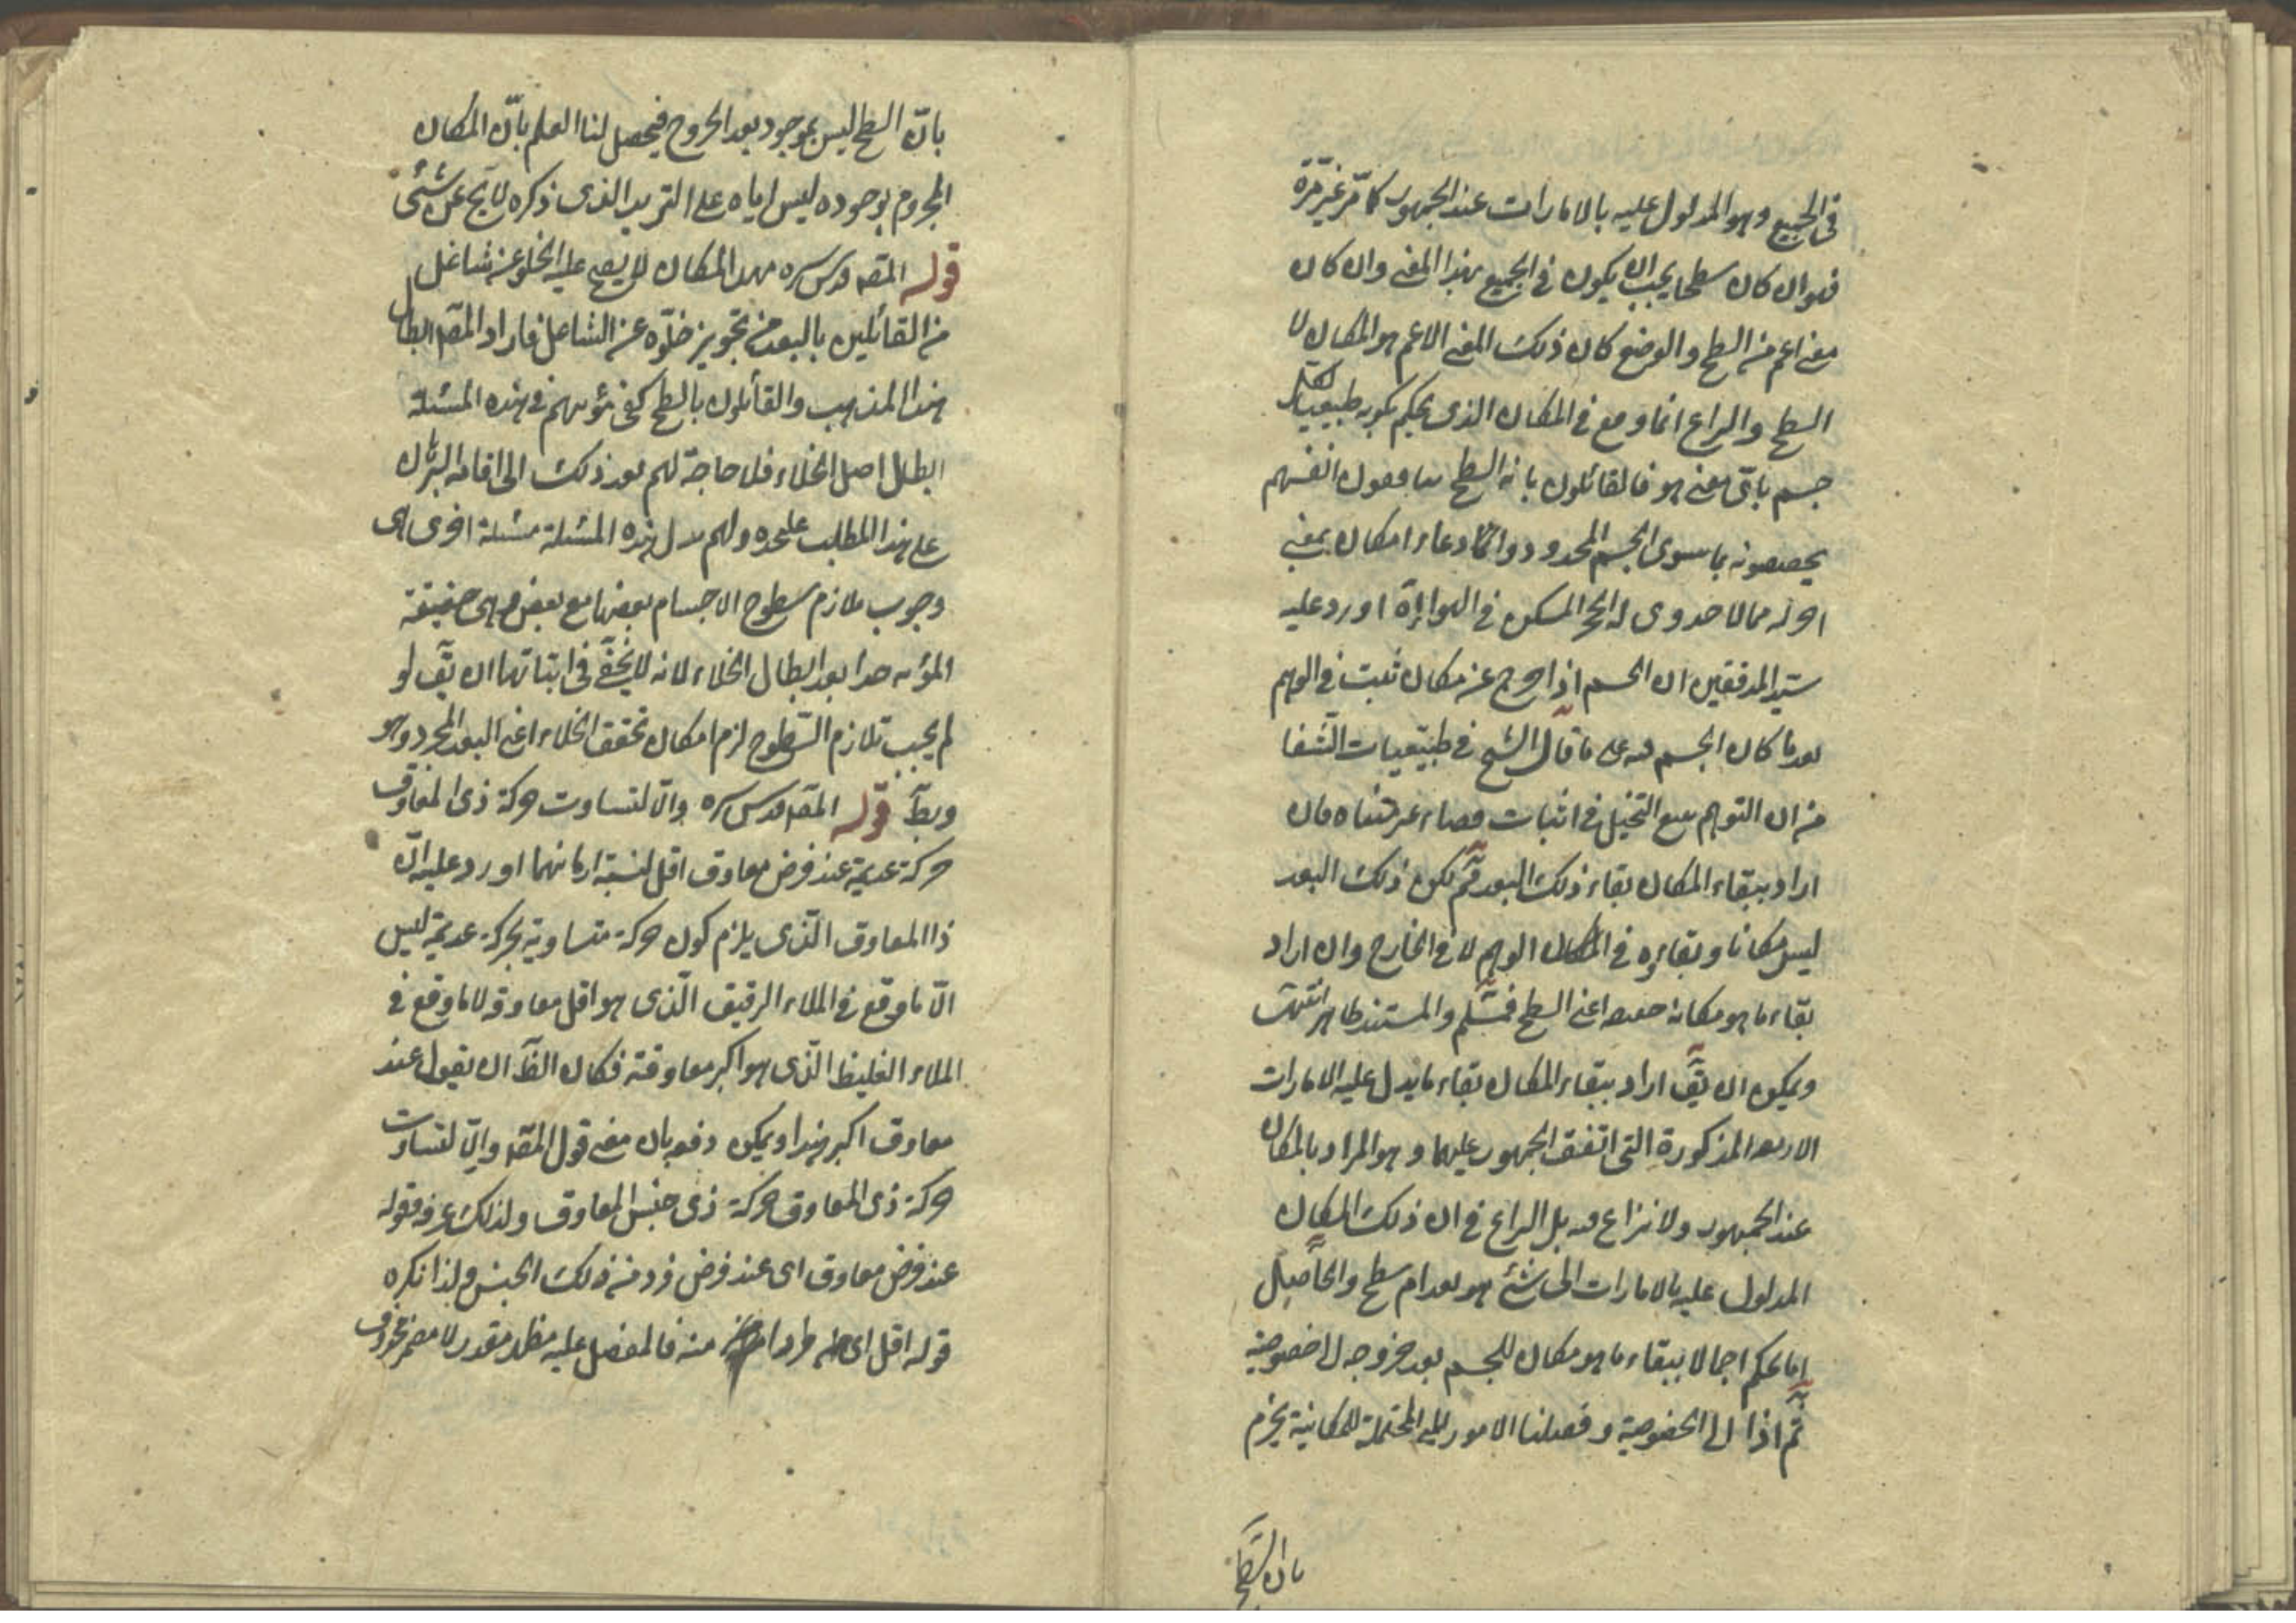 في الجميع وهو المدلول عليه بالامارات عند الجمهور كما مر غير مرة
فهو ان كان سطحا يجب ان يكون في الجميع بهذا المعنى وان كان
معنى اعم من السطح والوضع كان ذلك المعنى الاعم هو المكان لا
السطح والنزاع انما وقع في المكان الذى يحكم بكونه طبيعيا لكل
جسم باى معنى هو فالقائلون بانه السطح انفسهم
يخصصونه بما سوى الجسم المحدود وادعاء امكان بمعنى
الحجر المسكن في الهواء اورد عليه
سيد المدققين ان الجسم اذا خرج عن مكان ثبت في الوهم
بعد ما كان الجسم فيه على ما قال الشيخ في طبيعيات الشفا
من ان التوهم يتبع التخيل في اثبات فان
اراد ببقاء المكان بقاء ذلك البعد فم لكن ذلك البعد
ليس مكانا وبقاءه في المكان الوهم لا في الخارج وان اراد
بقاء ما هو مكانه حقيقة اعنى السطح فمسلم والمستند ظاهر انتهت
ويمكن ان يق اراد ببقاء المكان بقاء ما يدل عليه الامارات
الاربعة المذكورة التى اتفق الجمهور عليها وهو المراد بالمكان
عند الجمهور ولا نزاع فيه بل النزاع في ان ذلك المكان
المدلول عليه بالامارات اى شئ هو بعد ام سطح والحاصل
انا نحكم اجمالا ببقاء ما هو مكان للجسم بعد خروجه لا خصوصية
ثم اذا الى الخصوصية وفصلنا الامور المحتملة للمكانية يجزم
بان السطح
بان السطح ليس بموجود بعد الخروج فيحصل لنا العلم بان المكان
المجزوم بوجوده ليس اياه على التقرير الذى ذكره لا يخ عن شئ
قوله المقص قدس سره فهذا المكان لا يصح عليه الخلو عن شاغل
من القائلين بالبعد من تجويز خلوه عن الشاغل فاراد المقص ابطال
هذا المذهب والقائلون بالسطح كفى مؤنتهم في هذه المسئلة
ابطال اصل الخلاء فلا حاجة لهم بعد ذلك الى اقامة البرهان
على هذا المطلب عليحده ولهم بدل هذه المسئلة مسئلة اخرى هى
وجوب تلازم سطوح الاجسام بعضها مع بعض وهى خفيفة
المؤنة جدا بعد ابطال الخلاء لانه لا يخفى في اثباتها ان يق لو
لم يجب تلازم السطوح لزم امكان تحقق الخلاء اعنى البعد المجرد وهو
وبط قوله المقص قدس سره والا لتساوت حركة ذى المعاوق
حركة عديمة عند فرض معاوق اقل لنسبة زمانهما اورد عليه ان
ذا المعاوق الذى يلزم كون حركة متساوية بحركة عديمة ليس
الا ما وقع في الملاء الرقيق الذى هو اقل معاوقة لا ما وقع في
الملاء الغليظ الذى هو اكبر معاوقة فكان الظ ان يقول عند
معاوق اكبر هذا ويمكن دفعه بان معنى قول المقص والا لتساوت
حركة ذى المعاوق حركة ذى جنس المعاوق ولذلك عرفه وقوله
عند فرض معاوق اى عند فرض فرد من ذلك الجنس ولذا نكره
قوله اقل اى منه فالمفضل عليه مقدر